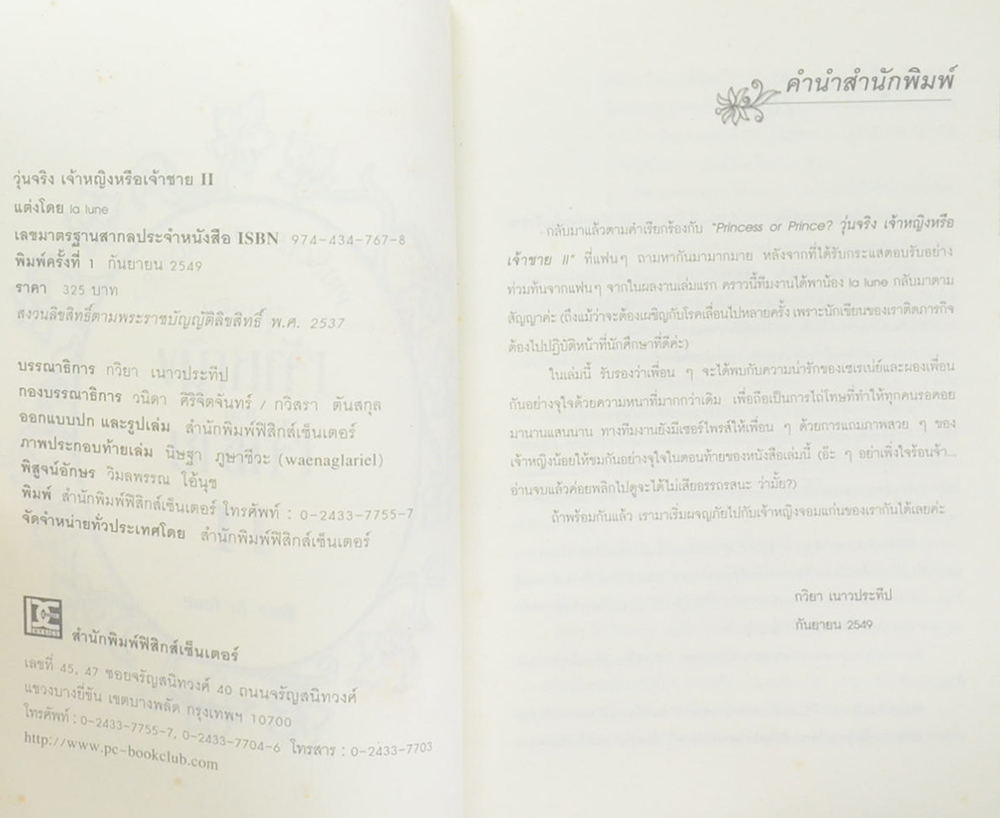 วุ่นจริง เจ้าหญิงหรือเจ้าชาย II
แต่งโดย la lune
เลขมาตรฐานสากลประจำหนังสือ ISBN 974-434-767-8
พิมพ์ครั้งที่ 1 กันยายน 2549
ราคา 325 บาท
สงวนลิขสิทธิ์ตามพระราชบัญญัติลิขสิทธิ์ พ.ศ. 2537
บรรณาธิการ กวิยา เนาวประทีป
กองบรรณาธิการ วนิดา ศิริจิตจันทร์ / กวิสรา ตันสกุล
ออกแบบปก และรูปเล่ม สำนักพิมพ์ฟิสิกส์เซ็นเตอร์
ภาพประกอบท้ายเล่ม นิษฐา ภูษาชีวะ (waenaglariel)
พิสูจน์อักษร วิมลพรรณ โอ้นุช
พิมพ์ สำนักพิมพ์ฟิสิกส์เซ็นเตอร์ โทรศัพท์ : 0-2433-7755-7
จัดจำหน่ายทั่วประเทศโดย สำนักพิมพ์ฟิสิกส์เซ็นเตอร์
สำนักพิมพ์ฟิสิกส์เซ็นเตอร์
เลขที่ 45, 47 ซอยจรัญสนิทวงศ์ 40 ถนนจรัญสนิทวงศ์
แขวงบางยี่ขัน เขตบางพลัด กรุงเทพฯ 10700
โทรศัพท์ : 0-2433-7755-7, 0-2433-7704-6 โทรสาร : 0-2433-7703
http://www.pc-bookclub.com
คำนำสำนักพิมพ์
กลับมาแล้วตามคำเรียกร้องกับ "Princess or Prince? วุ่นจริง เจ้าหญิงหรือ
เจ้าชาย II" ที่แฟนๆ ถามหากันมามากมาย หลังจากที่ได้รับกระแสตอบรับอย่าง
ท่วมท้นจากแฟนๆ จากในผลงานเล่มแรก คราวนี้ทีมงานได้พาน้อง la lune กลับมาตาม
สัญญาค่ะ (ถึงแม้ว่าจะต้องเผชิญกับโรคเลื่อนไปหลายครั้ง เพราะนักเขียนของเราติดภารกิจ
ต้องไปปฏิบัติหน้าที่นักศึกษาที่ดีค่ะ)
ในเล่มนี้ รับรองว่าเพื่อน ๆ จะได้พบกับความน่ารักของเซเรเน่ย์และผองเพื่อน
กันอย่างจุใจด้วยความหนาที่มากกว่าเดิม เพื่อถือเป็นการไถ่โทษที่ทำให้ทุกคนรอคอย
มานานแสนนาน ทางทีมงานยังมีเซอร์ไพรส์ให้เพื่อน ๆ ด้วยการแถมภาพสวย ๆ ของ
เจ้าหญิงน้อยให้ชมกันอย่างจุใจในตอนท้ายของหนังสือเล่มนี้ (อ๊ะ ๆ อย่าเพิ่งใจร้อนจ้า...
อ่านจบแล้วค่อยพลิกไปดูจะได้ไม่เสียอรรถรสนะ ว่ามั้ย?)
ถ้าพร้อมกันแล้ว เรามาเริ่มผจญภัยไปกับเจ้าหญิงจอมแก่นของเรากันได้เลยค่ะ
กวิยา เนาวประทีป
กันยายน 2549